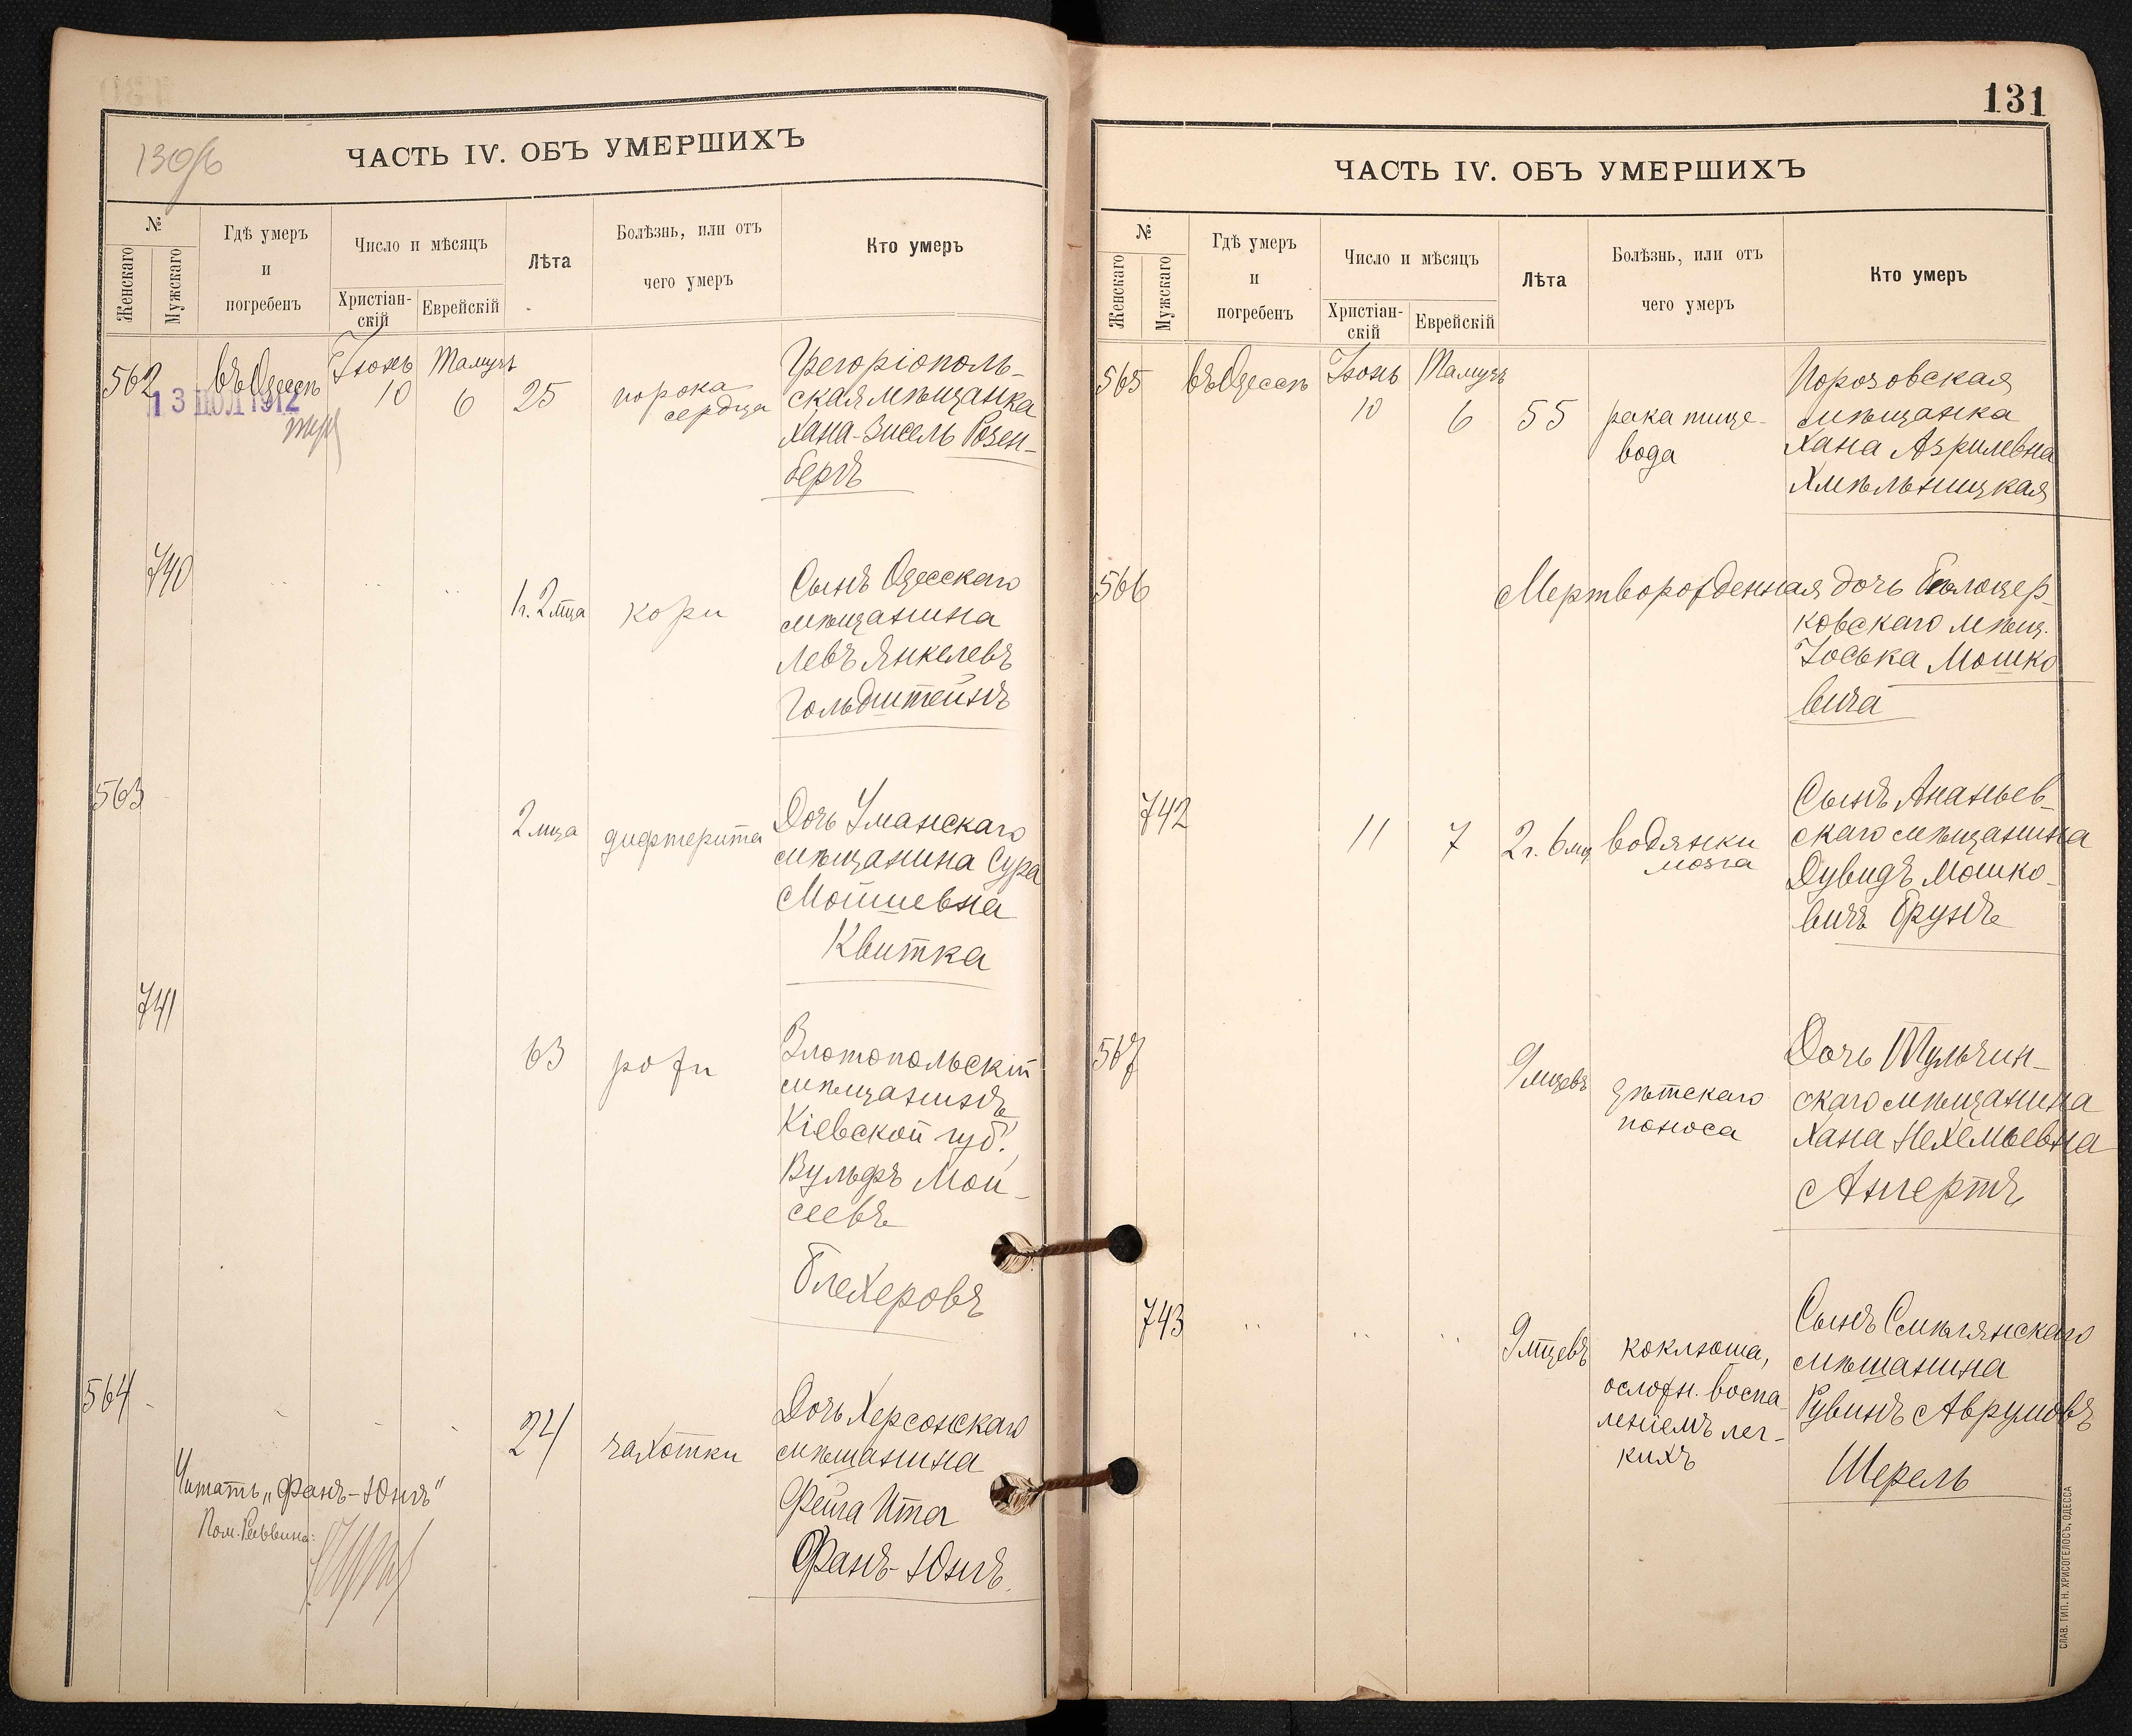 130об
ЧАСТЬ IV. ОБЪ УМЕРШИХЪ
№
Женскаго
Мужскаго
Гдѣ умеръ
и
погребенъ
Число и мѣсяцъ
Христіан-
скій
Еврейскій
Лѣта
Болѣзнь, или отъ
чего умеръ
Кто умеръ
562
въ Одессѣ
Іюнь
10
Тамузъ
6
25
порока
сердца
Григоріополь-
ская мѣщанка
Хана-Зисель Розен-
бергъ
13 ІЮЛ 1912
740
1г. 2 мца
кори
Сынъ Одесскаго
мѣщанина
Левъ Янкелевъ
Гольдштейнъ
563
2 мца
дифтерита
Дочь Уманскаго
мѣщанина Сура
Мойшевна
Квитка
741
63
рожи
Златопольскій
мѣщанинъ
Кіевской губ.,
Вульфъ Мои-
сеевъ
Блехеровъ
564
24
чахотки
Дочь Херсонскаго
мѣщанина
Фейга Ита
Фанъ-Юнгъ.
Читать „Фанъ-Юнгъ"
Пом. Раввина:
131
ЧАСТЬ IV. ОБЪ УМЕРШИХЪ
№
Женскаго
Мужскаго
Гдѣ умеръ
и
погребенъ
Число и мѣсяцъ
Христіан-
скій
Еврейскій
Лѣта
Болѣзнь, или отъ
чего умеръ
Кто умеръ
565
въ Одессѣ
Іюнь
10
Тамузъ
6
55
рака пище-
вода
Порозовская
мѣщанка
Хана Азрилевна
Хмѣльницкая
566
Мертворожденная дочь Бѣлоцер-
ковскаго мѣщ.
Іоська Мошко
вича
742
11
7
2г. 6 мц
водянки
мозга
Сынъ Ананьев-
скаго мѣщанина
Дувидъ Мошко-
вичъ Грунъ
567
9 мцевъ
дѣтскаго
поноса
Дочь Тульчин-
скаго мѣщанина
Хана Нехемьевна
Ангертъ
743
9 мцевъ
коклюша,
осложн. воспа-
леніемъ лег-
кихъ
Сынъ Смѣлянскаго
мѣщанина
Рувинъ Аврумовъ
Шерель
СЛАВ. ТИП. Н. ХРИСОГЕЛОСЪ, ОДЕССА